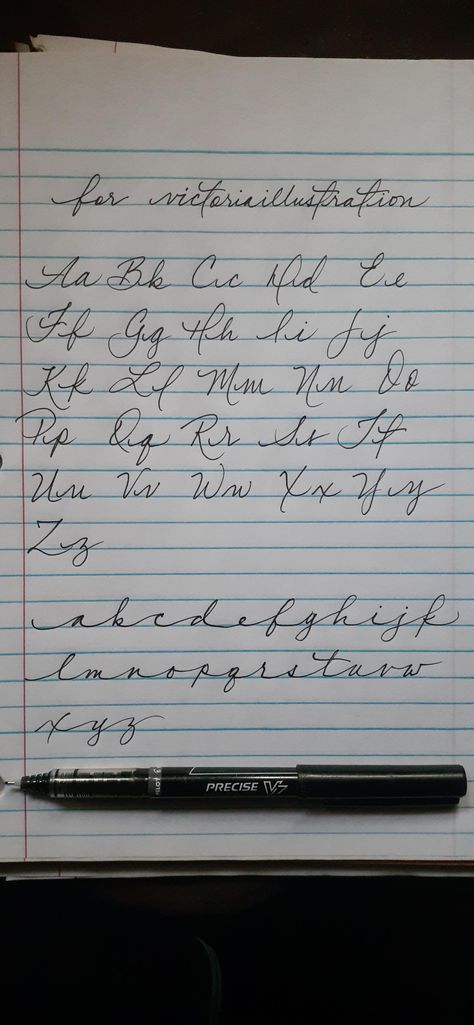 for victoriaillustration
Aa Bb Cc Dd Ee
Ff Gg Hh Ii Jj
Kk Ll Mm Nn Oo
Pp Qq Rr Ss Tt
Uu Vv Ww Xx Yy
Zz
abcdefghijk
lmnopqrstuvw
xyz
PILOT PRECISE V7